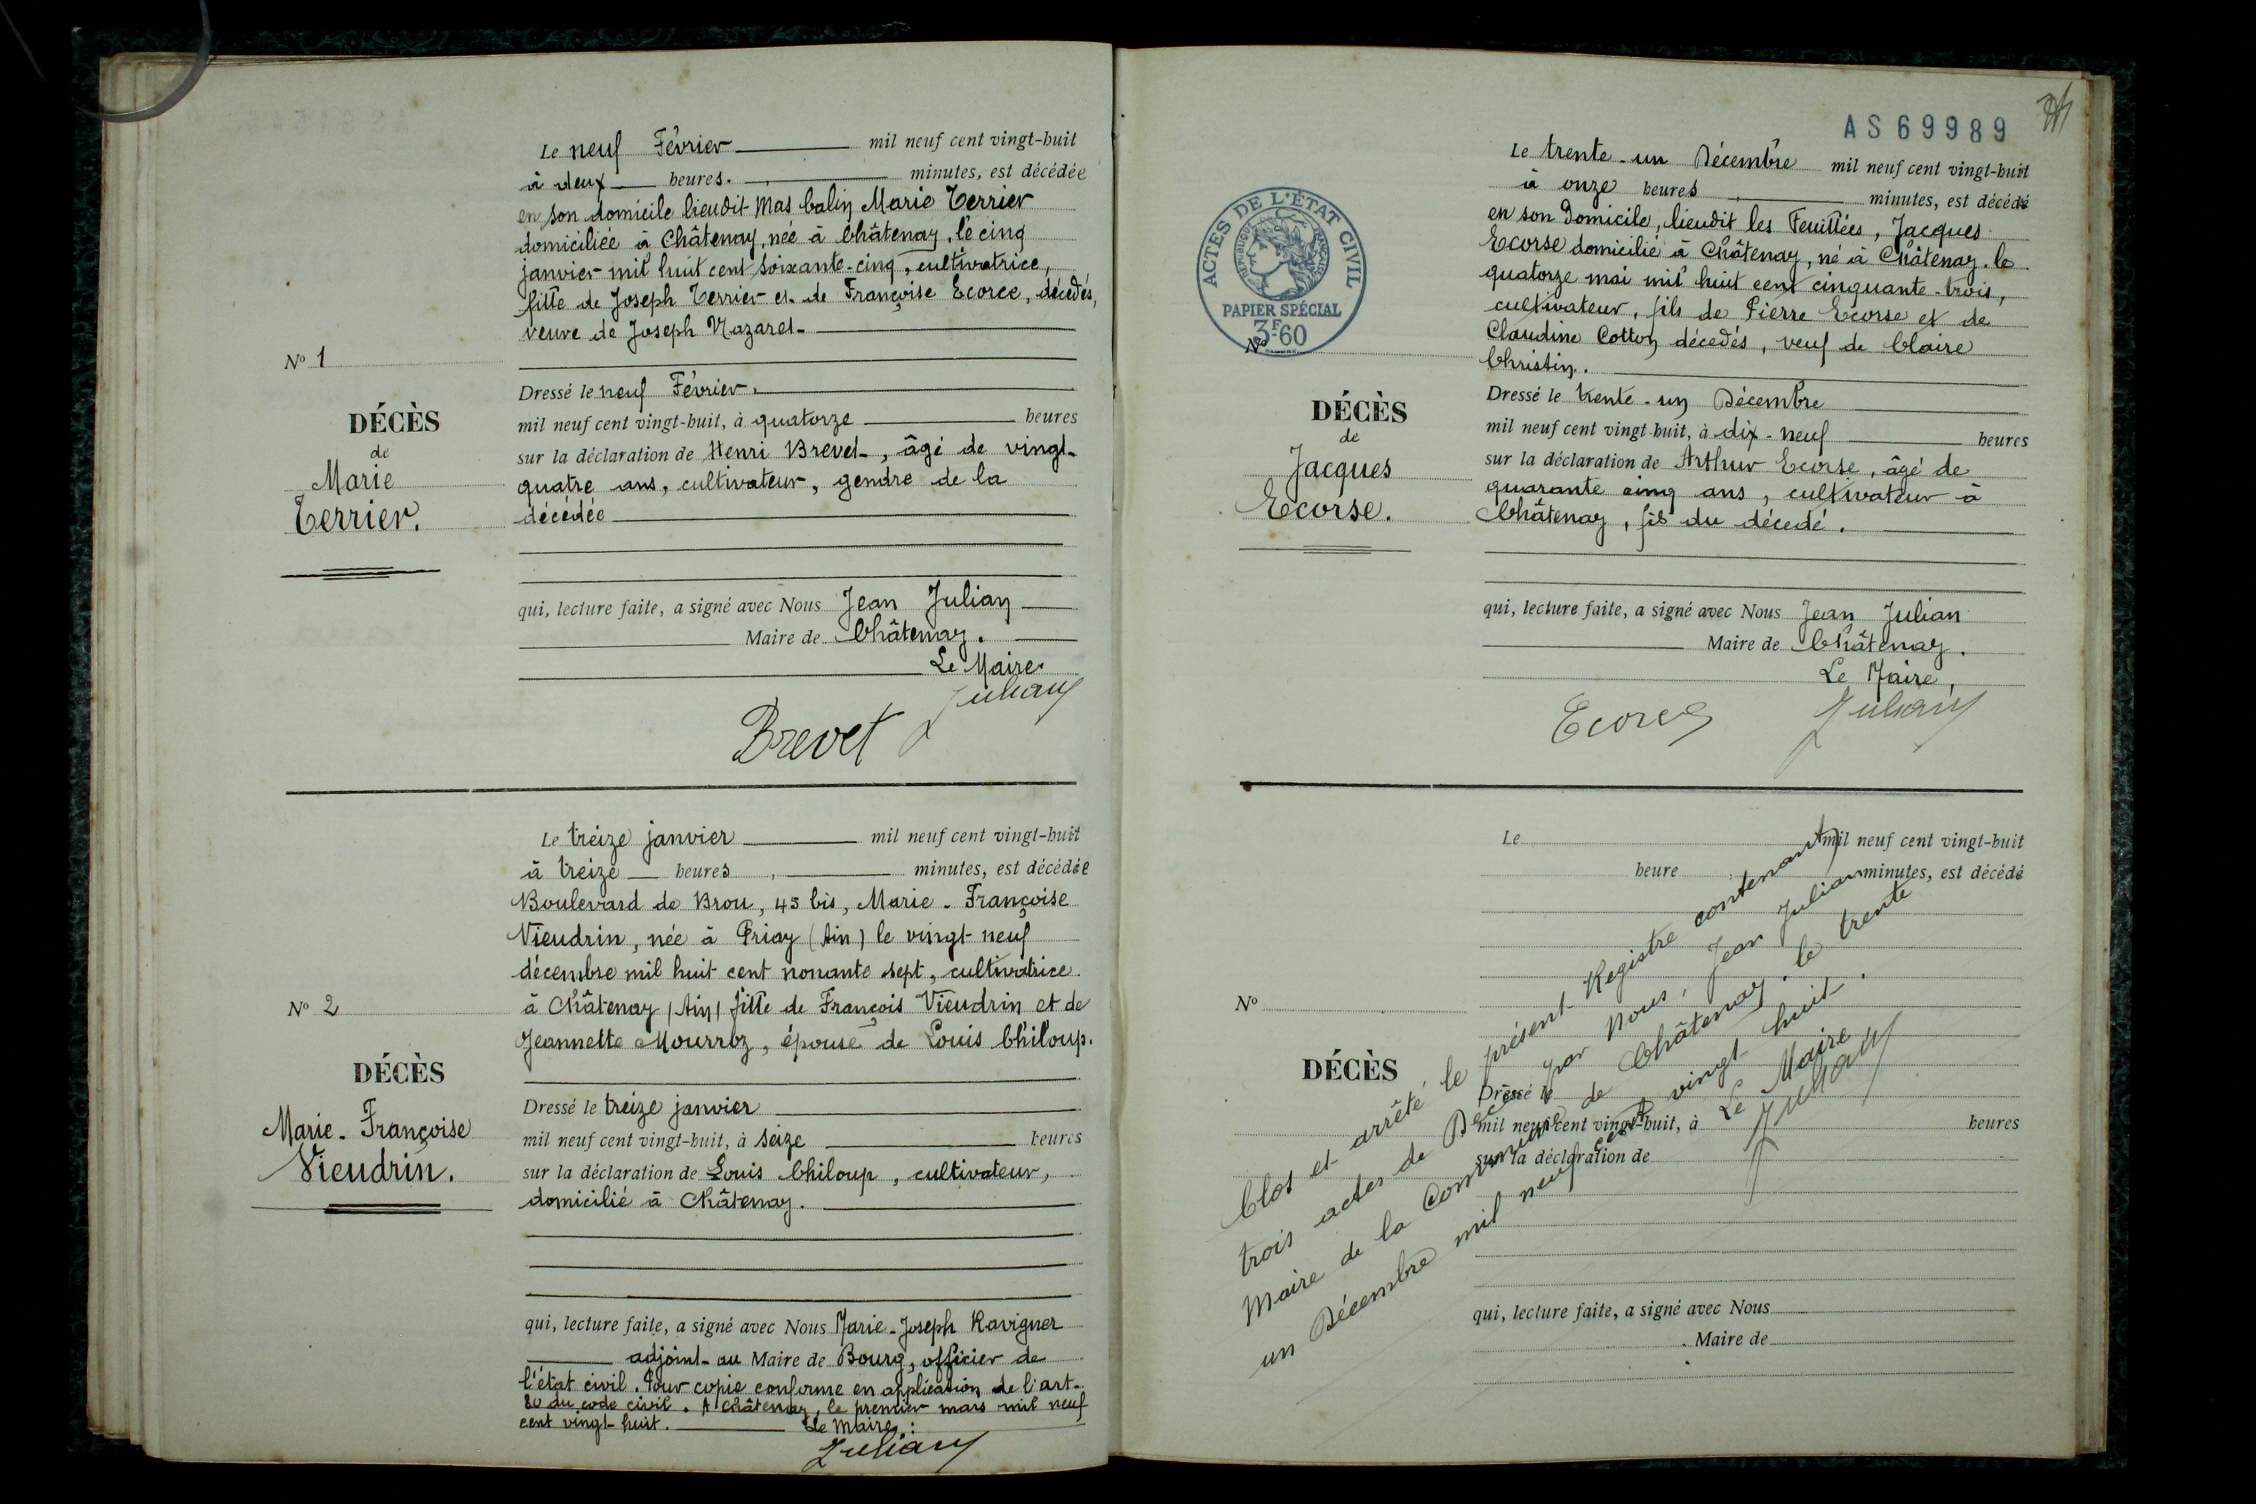 Le neuf Février mil neuf cent vingt-huit
à deux heures. minutes, est décédée
en son domicile lieudit Mas Balin Marie Terrier
domiciliée à Châtenay, née à Châtenay, le cinq
janvier mil huit cent soixante-cinq, cultivatrice,
fille de Joseph Terrier et de Françoise Ecorce, décédés,
veuve de Joseph Nazaret
No 1
Dressé le neuf Février.
mil neuf cent vingt-huit, à quatorze heures
DÉCÈS
de
Marie
Terrier.
sur la déclaration de Henri Brevet, âgé de vingt-
quatre ans, cultivateur, gendre de la
décédée
qui, lecture faite, a signé avec Nous Jean Julian
Maire de Châtenay.
Le Maire
Brevet Julian
Le treize janvier mil neuf cent vingt-huit
à treize heures, minutes, est décédée
Boulevard de Brou, 45 bis, Marie-Françoise
Vieudrin, née à Priay (Ain) le vingt-neuf
décembre mil huit cent nonante sept, cultivatrice
à Châtenay (Ain) fille de François Vieudrin et de
Jeannette Mourroz, épouse de Louis Chiloup.
No 2
DÉCÈS
Marie-Françoise
Vieudrin.
Dressé le treize janvier
mil neuf cent vingt-huit, à seize heures
sur la déclaration de Louis Chiloup, cultivateur,
domicilié à Châtenay.
qui, lecture faite, a signé avec Nous Marie-Joseph Ravigner
adjoint au Maire de Bourg, officier de
l'état civil. Pour copie conforme en application de l'art.
80 du code civil. A Châtenay, le premier mars mil neuf
cent vingt-huit. Le Maire:
Julian
AS 69989
ACTES DE L'ÉTAT CIVIL
RÉPUBLIQUE FRANÇAISE
PAPIER SPÉCIAL
3F60
Le trente-un Décembre mil neuf cent vingt-huit
à onze heures, minutes, est décédé
en son Domicile, lieudit les Feuillées, Jacques
Ecorse domicilié à Châtenay, né à Châtenay, le
quatorze mai mil huit cent cinquante-trois,
cultivateur, fils de Pierre Ecorse et de
Claudine Cotton décédés, veuf de Claire
Christin.
No
DÉCÈS
de
Jacques
Ecorse.
Dressé le trente-un Décembre
mil neuf cent vingt-huit, à dix-neuf heures
sur la déclaration de Arthur Ecorse, âgé de
quarante cinq ans, cultivateur à
Châtenay, fils du décédé.
qui, lecture faite, a signé avec Nous Jean Julian
Maire de Châtenay.
Le Maire,
Ecorce Julian
Le mil neuf cent vingt-huit
heure minutes, est décédé
No
DÉCÈS
Dressé le
mil neuf cent vingt-huit, à heures
sur la déclaration de
qui, lecture faite, a signé avec Nous
Maire de
Clos et arrêté le présent Registre contenant
trois actes de Décès par Nous, Jean Julian
Maire de la Commune de Châtenay. le trente
un Décembre mil neuf cent vingt huit.
Le Maire
Julian